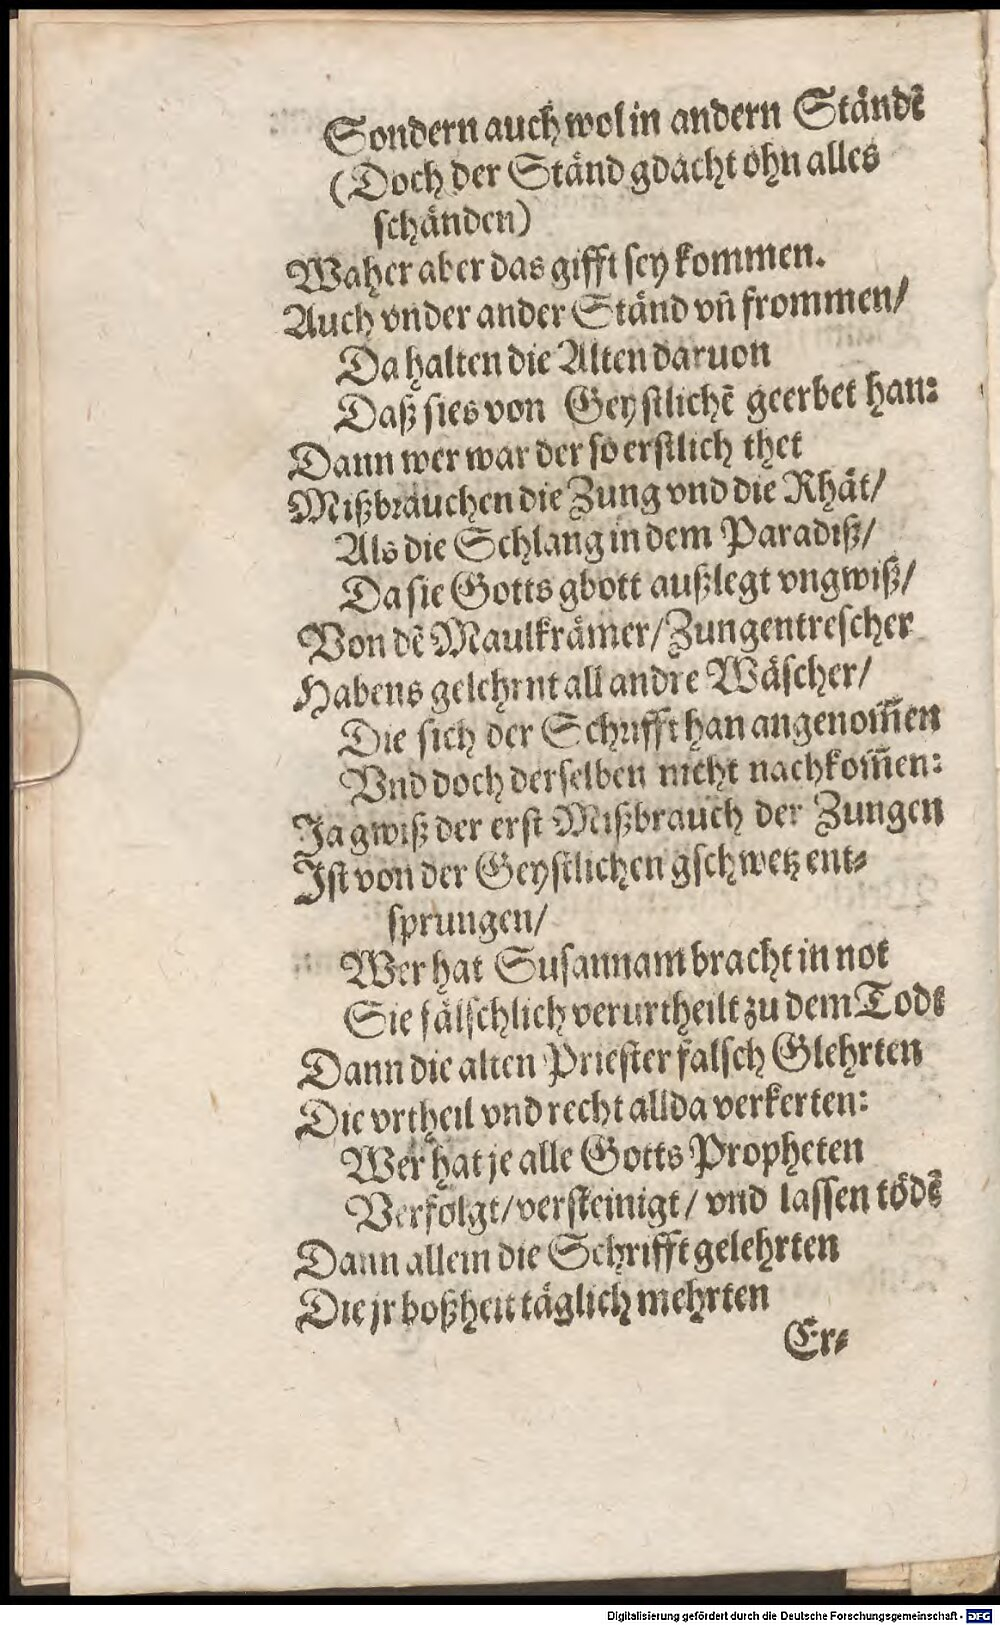 Sondern auch wol in andern Ständẽ
(Doch der Ständ gdacht ohn alles
schänden)
Waher aber das gifft sey kommen.
Auch vnder ander Ständ vñ frommen/
Da halten die Alten daruon
Daß sies von Geystlichẽ geerbet han:
Dann wer war der so erstlich thet
Mißbrauchen die Zung vnd die Rhät/
Als die Schlang in dem Paradiß/
Da sie Gotts gbott außlegt vngwiß/
Von dẽ Maulkrämer/Zungentrescher
Habens gelehrnt all andre Wäscher/
Die sich der Schrifft han angenom̃en
Vnd doch derselben nicht nachkom̃en:
Ja gwiß der erst Mißbrauch der Zungen
Ist von der Geystlichen gschwetz ent-
sprungen/
Wer hat Susannam bracht in not
Sie fälschlich verurtheilt zu dem Tods
Dann die alten Priester falsch Glehrten
Die vrtheil vnd recht allda verkerten:
Wer hat je alle Gotts Propheten
Verfolgt/versteinigt/ vnd lassen tödẽ
Dann allein die Schrifft gelehrten
Die jr boßheit täglich mehrten
Er-
Digitalisierung gefördert durch die Deutsche Forschungsgemeinschaft - DFG